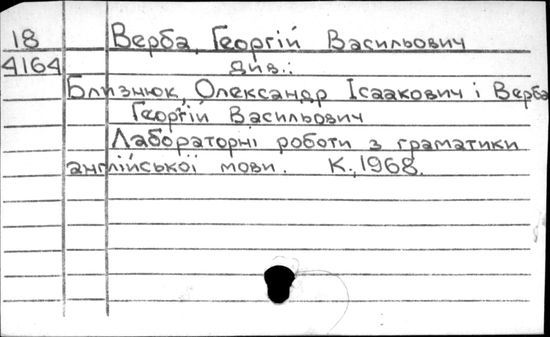 18 Верба, Георгій Васильович
4164 див.:
Близнюк, Олександр Ісаакович і Верба
Георгій Васильович
Лабораторні роботи з граматики
англійської мови. К., 1968.